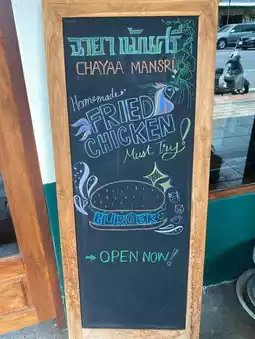 ฉายา แมนศรี
CHAYAA MANSRI
Homemade
FRIED
CHICKEN
Must Try!
BURGER
→ OPEN NOW!